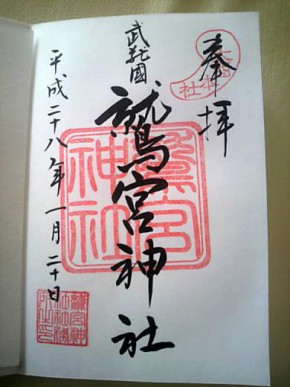 奉拝
武蔵國
鷲宮神社
平成二十八年一月二十日
鷲宮神社